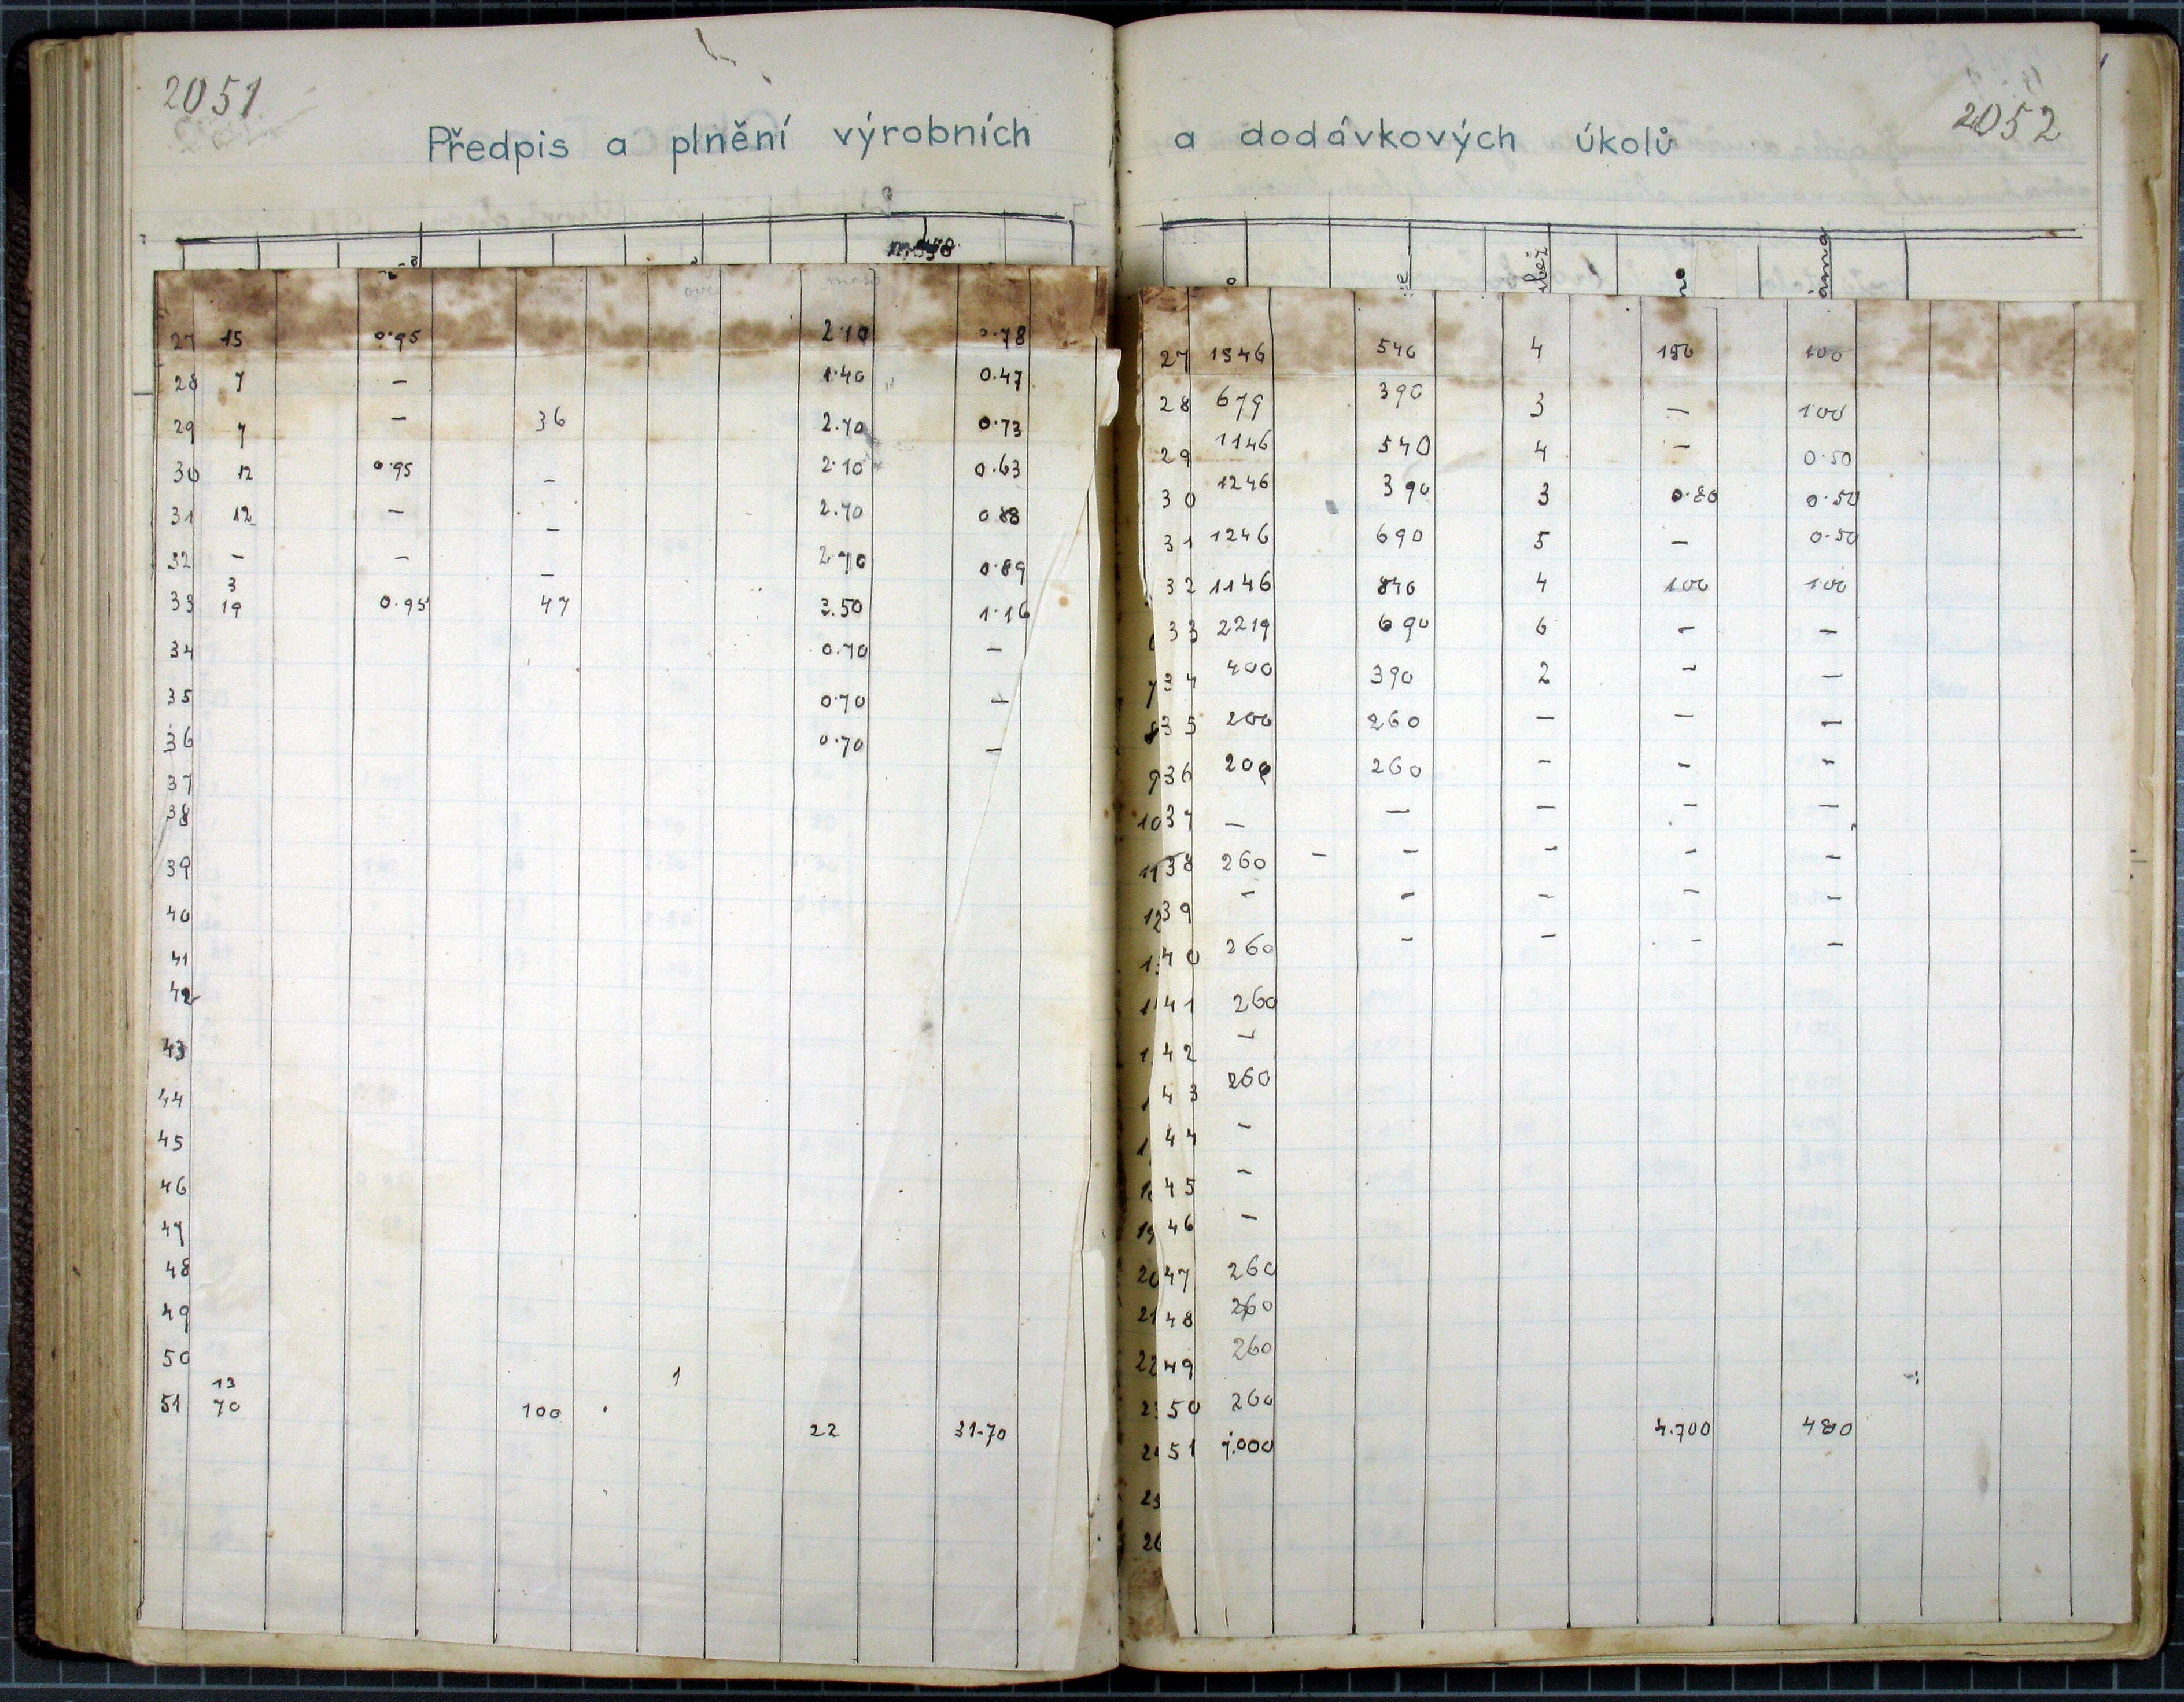 2051
Předpis a plnění výrobních
27 15 0.95 2.10 0.78
28 7 – 1.40 0.47
29 7 – 36 2.70 0.73
30 12 0.95 – 2.10 0.63
31 12 – – 2.70 0.88
32 – – – 2.70 0.89
3
33 19 0.95 47 3.50 1.16
34 0.70 –
35 0.70 –
36 0.70 –
37
38
39
40
41
42
43
44
45
46
47
48
49
50
13 1
51 70 100
22 31.70
2052
a dodávkových úkolů
27 1546 540 4 150 100
28 679 390 3 – 100
29 1146 540 4 – 0.50
30 1246 390 3 0.80 0.50
31 1246 690 5 – 0.50
32 1146 840 4 100 100
33 2219 690 6 – –
7 34 400 390 2 – –
8 35 200 260 – – –
9 36 200 260 – – –
10 37 – – – – –
11 38 260 – – – – –
12 39 – – – – –
40 260 – – – –
41 260
42 –
43 260
44 –
45 –
19 46 –
20 47 260
21 48 260
22 49 260
50 260
51 7.000 4.700 480
25
26